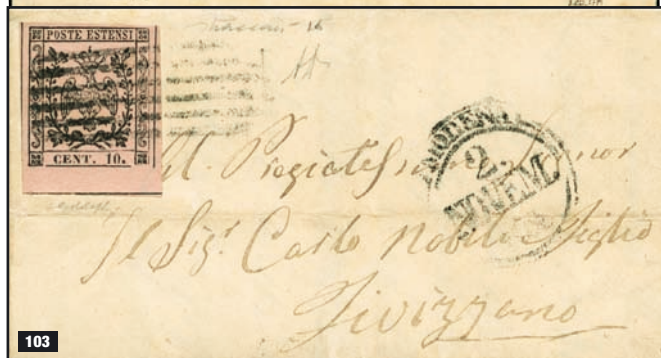 POSTE ESTENSI
CENT. 10.
MODENA
2.
NOVEM.
Al Pregiatess Signor
Il Sigr Carlo Nobili Figlio
Fivizzano
103